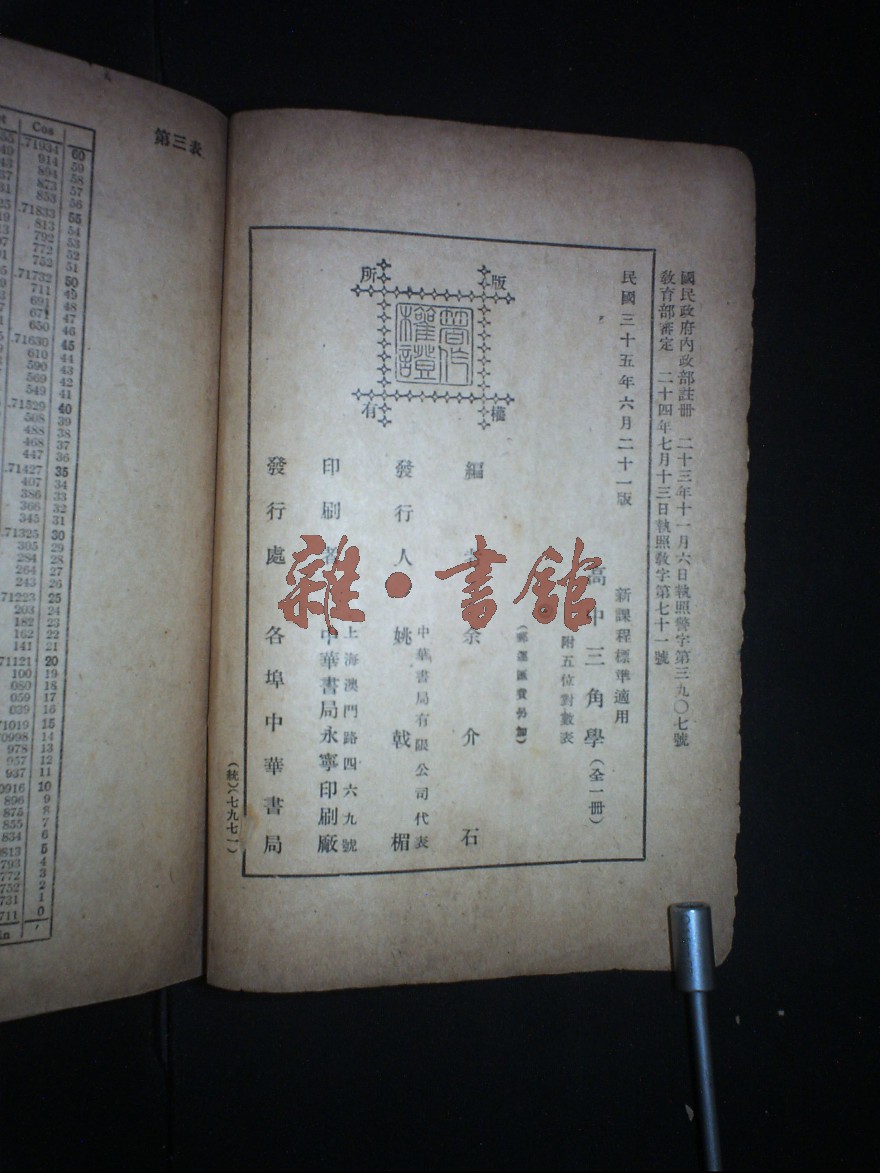 國民政府內政部註冊 二十三年十一月六日執照警字第三九〇七號
教育部審定 二十四年七月十三日執照教字第七十一號
民國三十五年六月二十一版
新課程標準適用
高中三角學(全一冊)
附五位對數表
(郵運匯費另加)
編者 余介石
中華書局有限公司代表
發行人 姚戟楣
上海澳門路四六九號
印刷者 中華書局永寧印刷廠
發行處 各埠中華書局
(統)(七九七一)
版權所有
著作權證
雜·書館
第三表
Cos
.71934 60
914 59
894 58
873 57
853 56
.71833 55
813 54
792 53
772 52
752 51
.71732 50
711 49
691 48
671 47
650 46
.71630 45
610 44
590 43
569 42
549 41
.71529 40
508 39
488 38
468 37
447 36
.71427 35
407 34
386 33
366 32
345 31
.71325 30
305 29
284 28
264 27
243 26
71223 25
203 24
182 23
162 22
141 21
71121 20
100 19
080 18
059 17
039 16
71019 15
70998 14
978 13
957 12
937 11
0916 10
896 9
875 8
855 7
834 6
0813 5
793 4
772 3
752 2
731 1
711 0